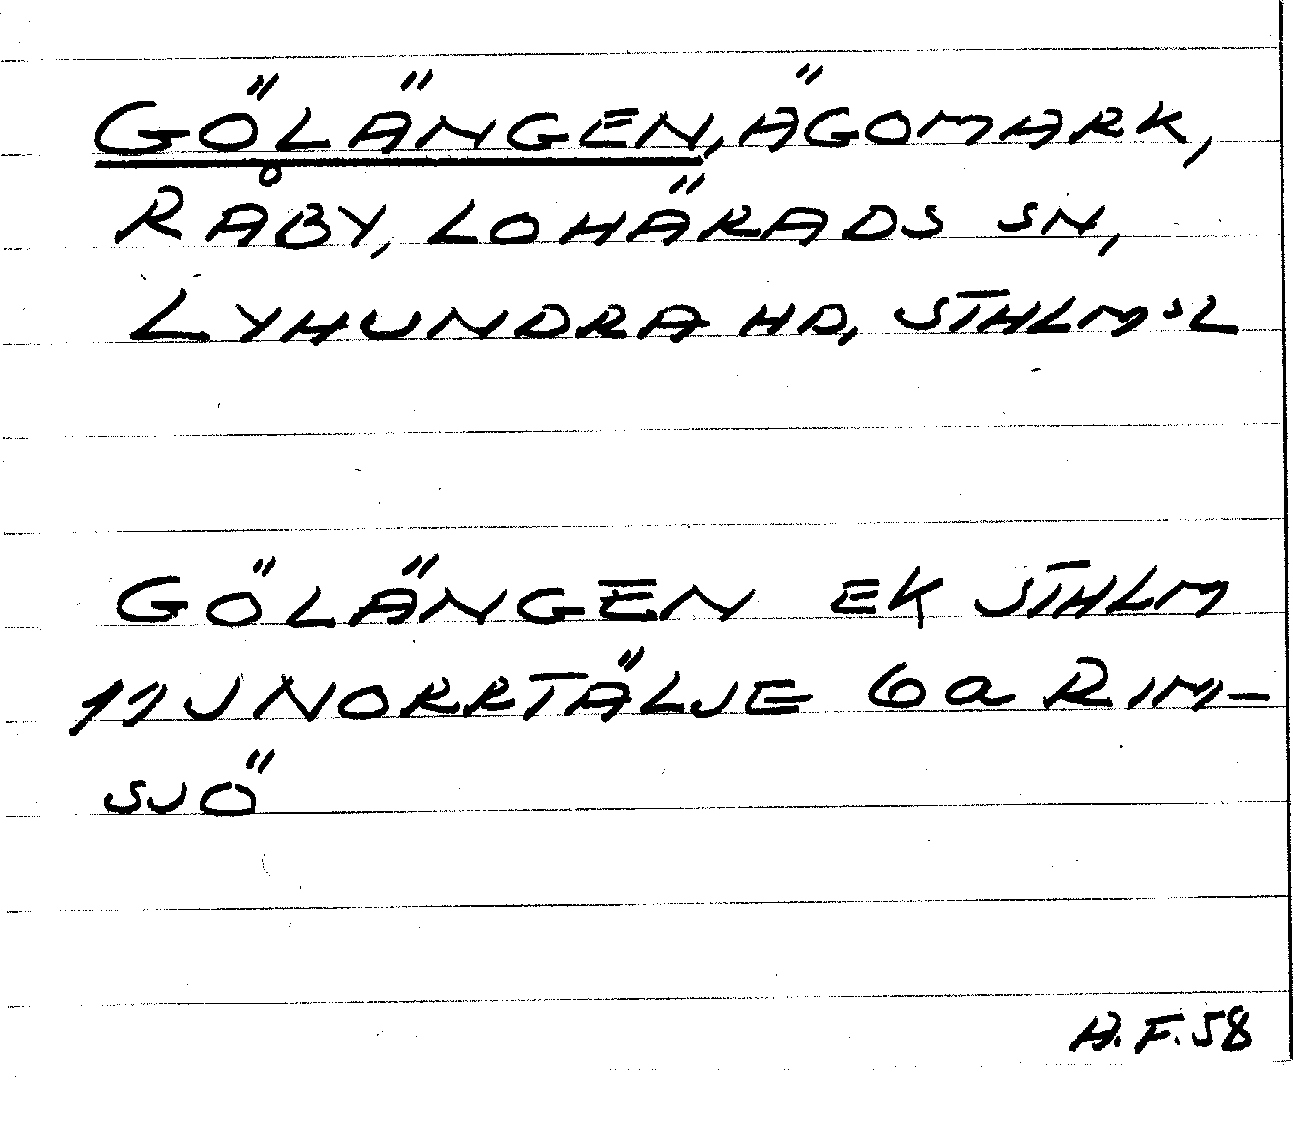 GÖLÄNGEN, ÄGOMARK,
RÅBY, LOHÄRADS SN,
LYHUNDRA HD, STHLM:S L
GÖLÄNGEN EK STHLM
11 J NORRTÄLJE 6a RIM-
SJÖ
H.F.58